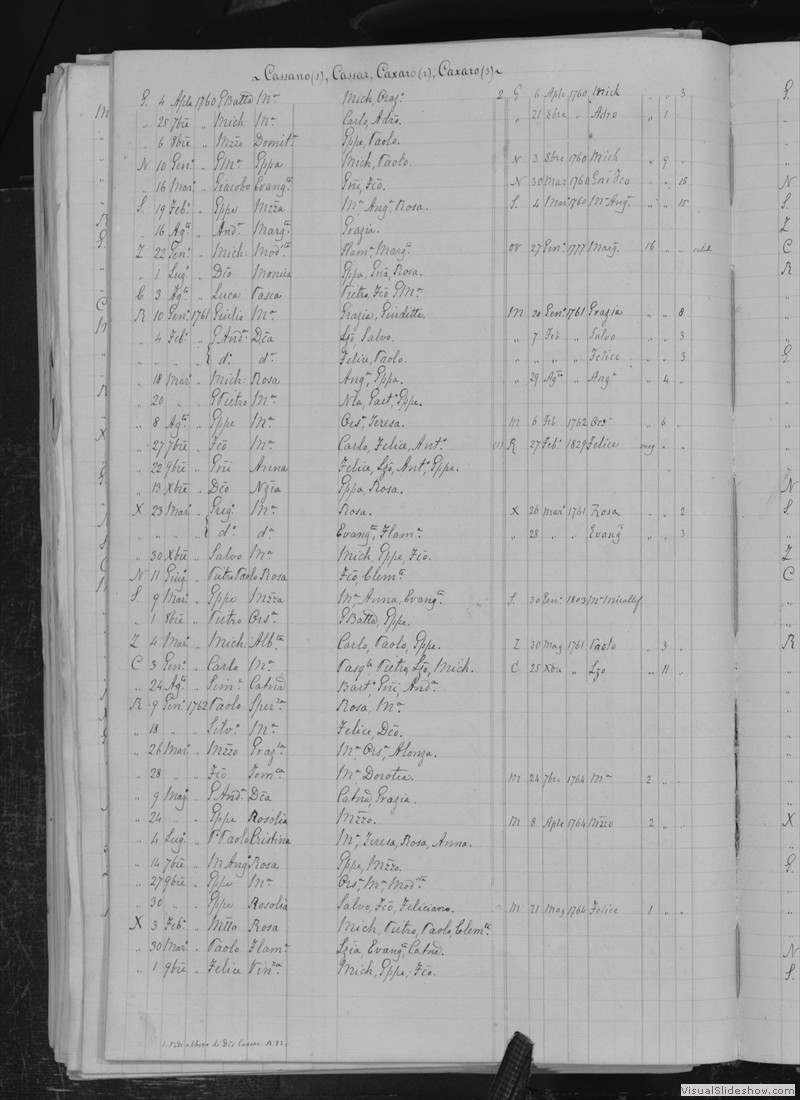 Cassano(1), Cassar, Caxaro(2), Caxaro(3)
G. 4 Aple 1760 GBatta Ma Mich, Oraz. 2 G 6 Aple 1760 Mich „ „ 3
„ 25 7bre „ Mich Ma Carlo, Adro. „ 21 8bre „ Adro „ 1 „
„ 6 8bre „ Mzzo Domit. Gppe, Paolo.
N 10 Gen. „ GMa Gppa Mich, Paolo. N 3 8bre 1760 Mich „ 9 „
„ 16 Mar. „ Giacobo Evang. Gni, Fco. N 30 Mar 1760 Gni Fco „ „ 15
S. 19 Feb. „ Gppe Mzza Ma, Ang, Rosa. S. 4 Mar 1760 Ma Ang „ „ 15
„ 16 Ag. „ And. Marg. Grazia.
Z 22 Gen. „ Mich. Mod. Flam, Marg. 27 Gen. 1777 Marg. 16 „ „
„ 1 Lug. „ Dco Monica Gppa, Gna, Rosa.
C 3 Ag. „ Luca Pasca Pietro, Fco GMa
R 10 Gen. 1761 Giulio Ma Grazia, Giuditta. M 20 Gen. 1761 Grazia „ „ 8
„ 4 Feb. „ GAnd. Dca Lzo, Salvo. „ 7 Feb „ Salvo „ „ 3
„ „ „ „ do. da. Felice, Paolo. „ „ „ „ Felice „ „ 3
„ 18 Mar. „ Mich. Rosa Ang, Gppa. „ 29 Ag. „ Ang. „ 4 „
„ 20 „ „ GPietro Ma Nta, Gaet. Gppe.
„ 8 Ag. „ Gppe Ma Ors. Teresa. M 6 Feb 1762 Ors. „ 6 „
„ 27 7bre „ Fco Ma Carlo, Felice, Ant. (1) R 27 Feb. 1829 Felice mag „ „
„ 22 9bre „ Gni Anna Felice, Lzo, Ant. Gppe.
„ 13 Xbre „ Dco Nzia Gppa, Rosa.
X 23 Mar. „ Greg. Ma Rosa. X 26 Mar. 1761 Rosa „ „ 2
„ „ „ „ do. da. Evang. Flam. „ 28 „ „ Evang. „ „ 3
„ 30 Xbre „ Salvo Ma Mich, Gppe, Fco.
N 11 Giug. „ Pietro Paolo Rosa Fco, Clem.
S. 9 Mar. „ Gppe Mzza Ma, Anna, Evang. S. 30 Gen. 1803 Ma
„ 1 8bre „ Pietro Ors. GBatta, Gppe.
Z 4 Mar. „ Mich. Alb. Carlo, Paolo, Gppe. Z 30 Mag 1761 Paolo „ 3 „
C 3 Gen. „ Carlo Ma Pasq. Pietro, Lzo, Mich. C 25 Xbre „ Lzo „ 11 „
„ 24 Ag. „ Sim. Catna Bart. Gni, And.
R 9 Gen. 1762 Paolo Sper. Rosa, Ma
„ 18 „ „ Silv. Ma Felice, Dco.
„ 26 Mar. „ Mzzo Graz. Ma, Ors. Alonza.
„ 28 „ „ Fco Tom. Ma Dorotea. M 24 7bre 1764 Ma 2 „ „
„ 9 Mag. „ GAnd. Dca Catna, Grazia.
„ 24 „ „ Gppe Rosolia Mzzo. M 8 Aple 1764 Mzzo 2 „ „
„ 4 Lug. „ PPaolo Cristina Ma, Teresa, Rosa, Anna.
„ 14 7bre „ MAng. Rosa Gppe, Mzzo.
„ 27 9bre „ Gppe Ma Ors, Ma, Mod.
„ 30 „ „ Gppe Rosolia Salvo, Fco, Feliciano. M 21 Mag 1764 Felice 1 „ „
X 3 Feb. „ Mtto Rosa Mich, Pietro, Paolo, Clem.
„ 30 Mar. „ Paolo Flam. Lzia Evang. Catna.
„ 1 9bre „ Felice Vin. Mich, Gppe, Fco.
VisualSlideshow.com